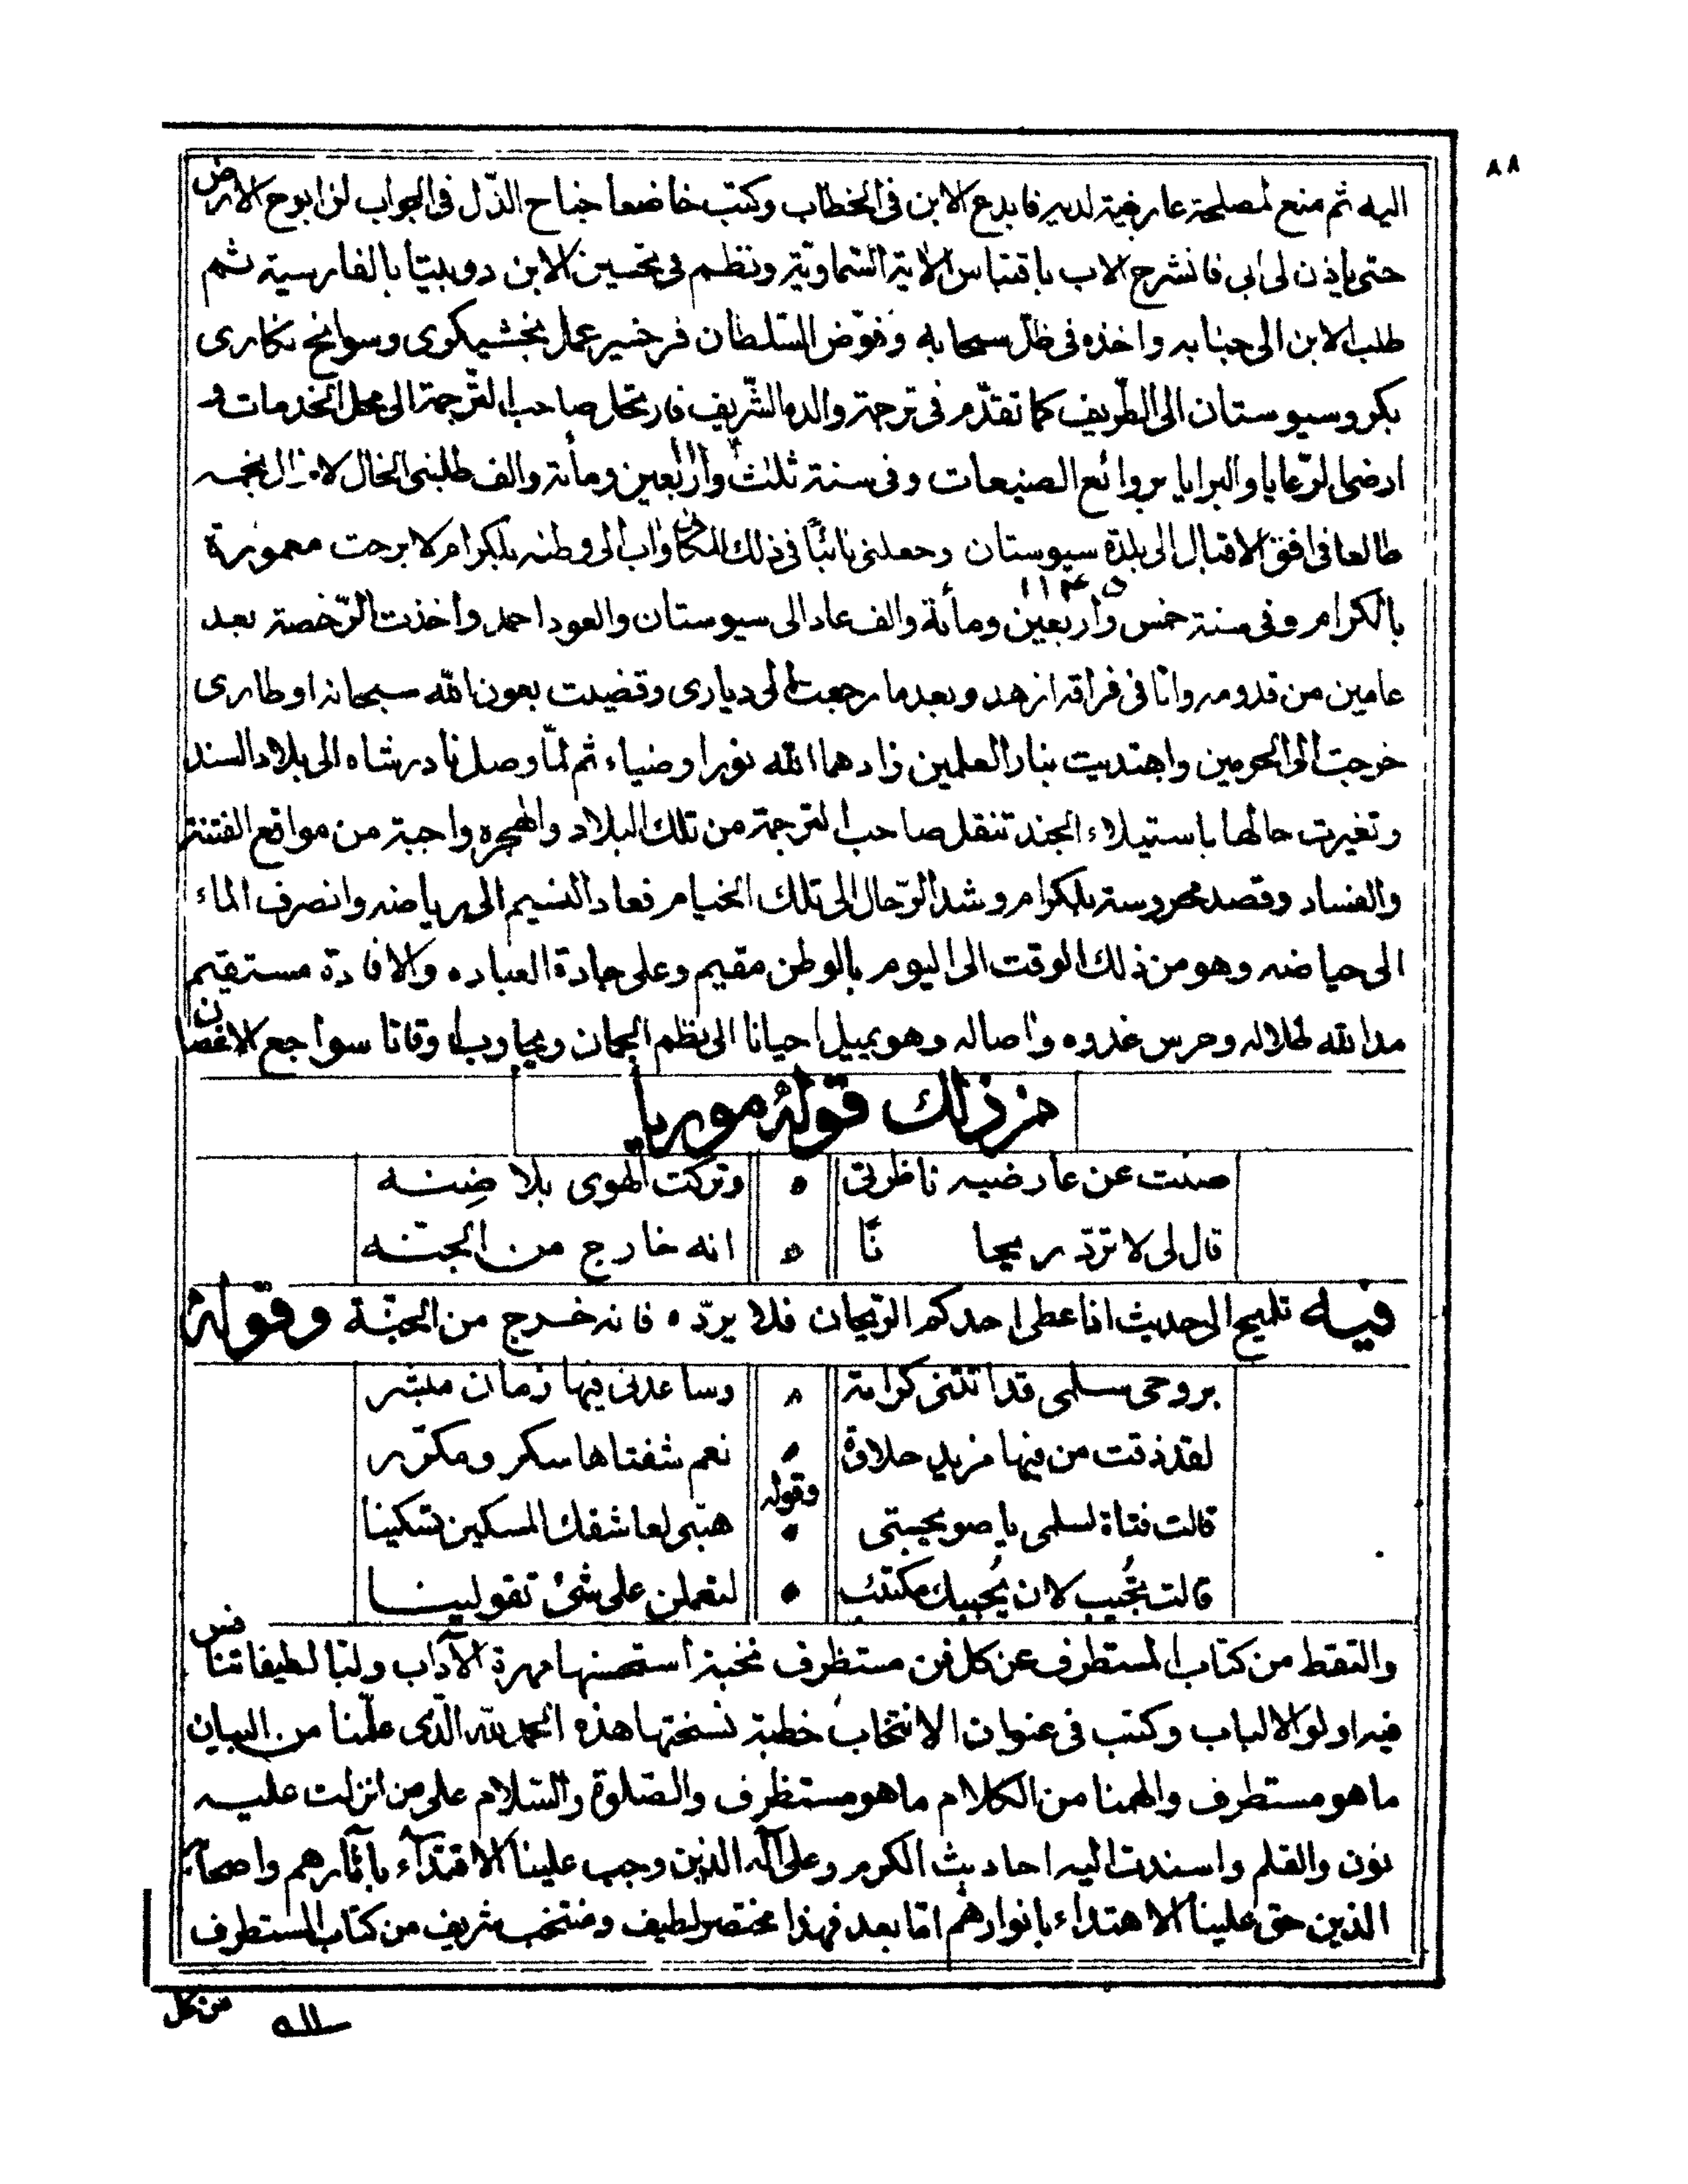 ٨٨
اليه ثم منع لمصلحة عارضية لديه فابدع الابن في الخطاب وكتب خاضعا جناح الذّل في الجواب لن ابرح الارض
حتى ياذن لى ابى فانشرح الاب باقتباس الاية السّماويّة ونظم في تحسين الابن دوبيتا بالفارسية ثم
طلب الابن الى جنابه واخذه في ظل سحابه وفوّض السّلطان فرخسير عمل بخشيكرى وسوانح نكارى
بكر وسيوستان الى الطّريف كما تقدّم في ترجمة والده الشّريف فارتحل صاحب الترجمة الى محل الخدمات و
ارضى الرّعايا والبرايا بروائع الصنيعات وفي سنة ثلٰث واربعين ومأنة والف طلبنى الخال لا زال نجمه
طالعا في افق الاقبال الى بلدة سيوستان وجعلنى نائبًا في ذلك المكان واب الى وطنه بلكرام لا برحت معمورة
١١٤٥
بالكرام وفي سنة خمس واربعين ومأنة والف عاد الى سيوستان والعود احمد واخذت الرّخصة بعد
عامين من قدومه وانا في فراقه ازهد وبعد ما رجعت الى ديارى وقضيت بعون الله سبحانه اوطارى
خرجت الى الحرمين واهتديت بنار العلمين زادهما الله نورا وضياء ثم لمّا وصل نادرشاه الى بلاد السند
وتغيرت حالها باستيلاء الجند تنقل صاحب الترجمة من تلك البلاد والهجره واجبة من مواقع الفتنة
والفساد وقصد محروسة بلكرام وشد الرّحال الى تلك الخيام فعاد النسيم الى رياضه وانصرف الماء
الى حياضه وهو من ذلك الوقت الى اليوم بالوطن مقيم وعلى جادة العباده والافادة مستقيم
مد الله ظلاله وحرس غدوه واصاله وهو يميل احيانا الى نظم الجمان ويجاوب اوقاتا سواجع الاغصان
من ذلك قولهٗ موريا
صنت عن عارضيه ناظرتى ٥ وتركت الهوى بلا ضِنـه
قال لى لا تردّ ريحا نًا ٥ انه خارج من الجنّـه
فيه تلميح الى حديث اذا اعطى احدكم الريحان فلا يردّه فانه خرج من الجنّة وقولهٗ
بروحى سلمى قد اتتنى كرامة وساعدنى فيها زمان ميسّر
لقد ذقت من فيها مزيد حلاوة نعم شفتاها سكر ومكرّر
وقوله
قالت فتاة لسلمى يا صويحبتى هبى لعاشقك المسكين تسكينا
قالت نجُيب لان يُحبيك مكتئب لتعملن على شئ تقولينـا
والتقط من كتاب المستطرف عن كل فن مستظرف نخبة استحسنها مهرة الآداب ولتبا لطيفا تنافس
فيه اولو الالباب وكتب في عنوان الانتخاب خطبة نسختها هذه الحمد لله الّذى علّمنا من البيان
ما هو مستطرف والهمنا من الكلام ما هو مستظرف والصّلوة والسّلام على من انزلت عليه
نون والقلم واسندت اليه احاديث الكرم وعلى آله الذين وجب علينا الاقتدآء بآثارهم واصحابه
الذين حق علينا الاهتداء بانوارهم امّا بعد فهذا مختصر لطيف ومنتخب شريف من كتاب المستطرف
من كل